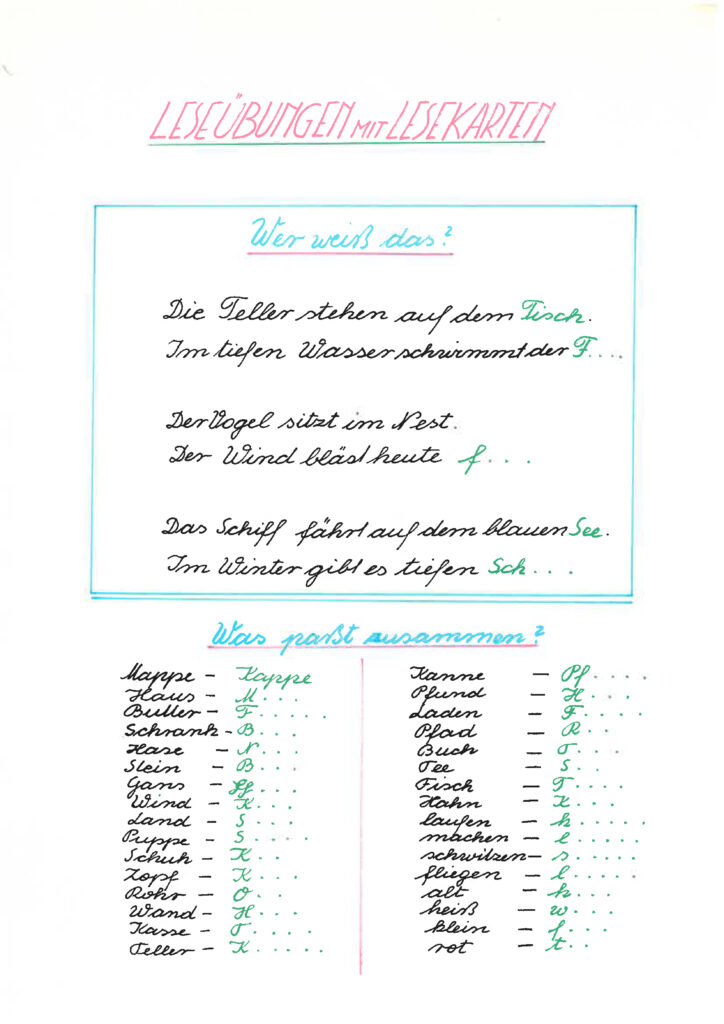 LESEÜBUNGEN MIT LESEKARTEN
Wer weiß das?
Die Teller stehen auf dem Tisch.
Im tiefen Wasser schwimmt der F....
Der Vogel sitzt im Nest.
Der Wind bläst heute f...
Das Schiff fährt auf dem blauen See.
Im Winter gibt es tiefen Sch...
Was paßt zusammen?
Mappe – Kappe
Haus – M...
Butter – F.....
Schrank – B...
Hase – N...
Stein – B...
Gans –
Wind – K...
Land – S...
Puppe – S....
Schuh – K..
Zopf – K...
Rohr – O..
Wand – H...
Kasse – T....
Teller – K.....
Kanne – Pf....
Pfund – H...
Laden – F....
Pfad – R..
Buch – T...
Tee – S..
Fisch – T....
Hahn – K...
laufen – k.....
machen – l.....
schwitzen – s......
fliegen – l.....
alt – k...
heiß – w...
klein – f....
rot – t..